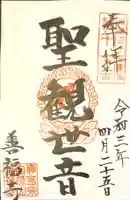 奉拝
令和三年
四月二十五日
聖観世音
善福寺